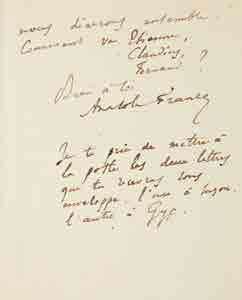 nous dînerons ensemble.
Comment va Étienne,
Claudius,
Fernand ?
Bien à toi
Anatole France
Je te prie de mettre à
la poste les deux lettres
que tu trouves sous
enveloppe. l'une à
l'autre à Gyp.